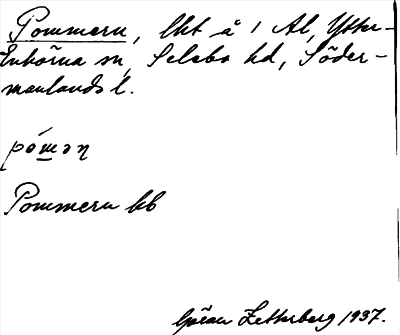 Pommern, lht å 1 Al, Ytter-
Enhörna sn, Selebo hd, Söder-
manlands l.
pómən
Pommern kb
Göran Zetterberg 1937.